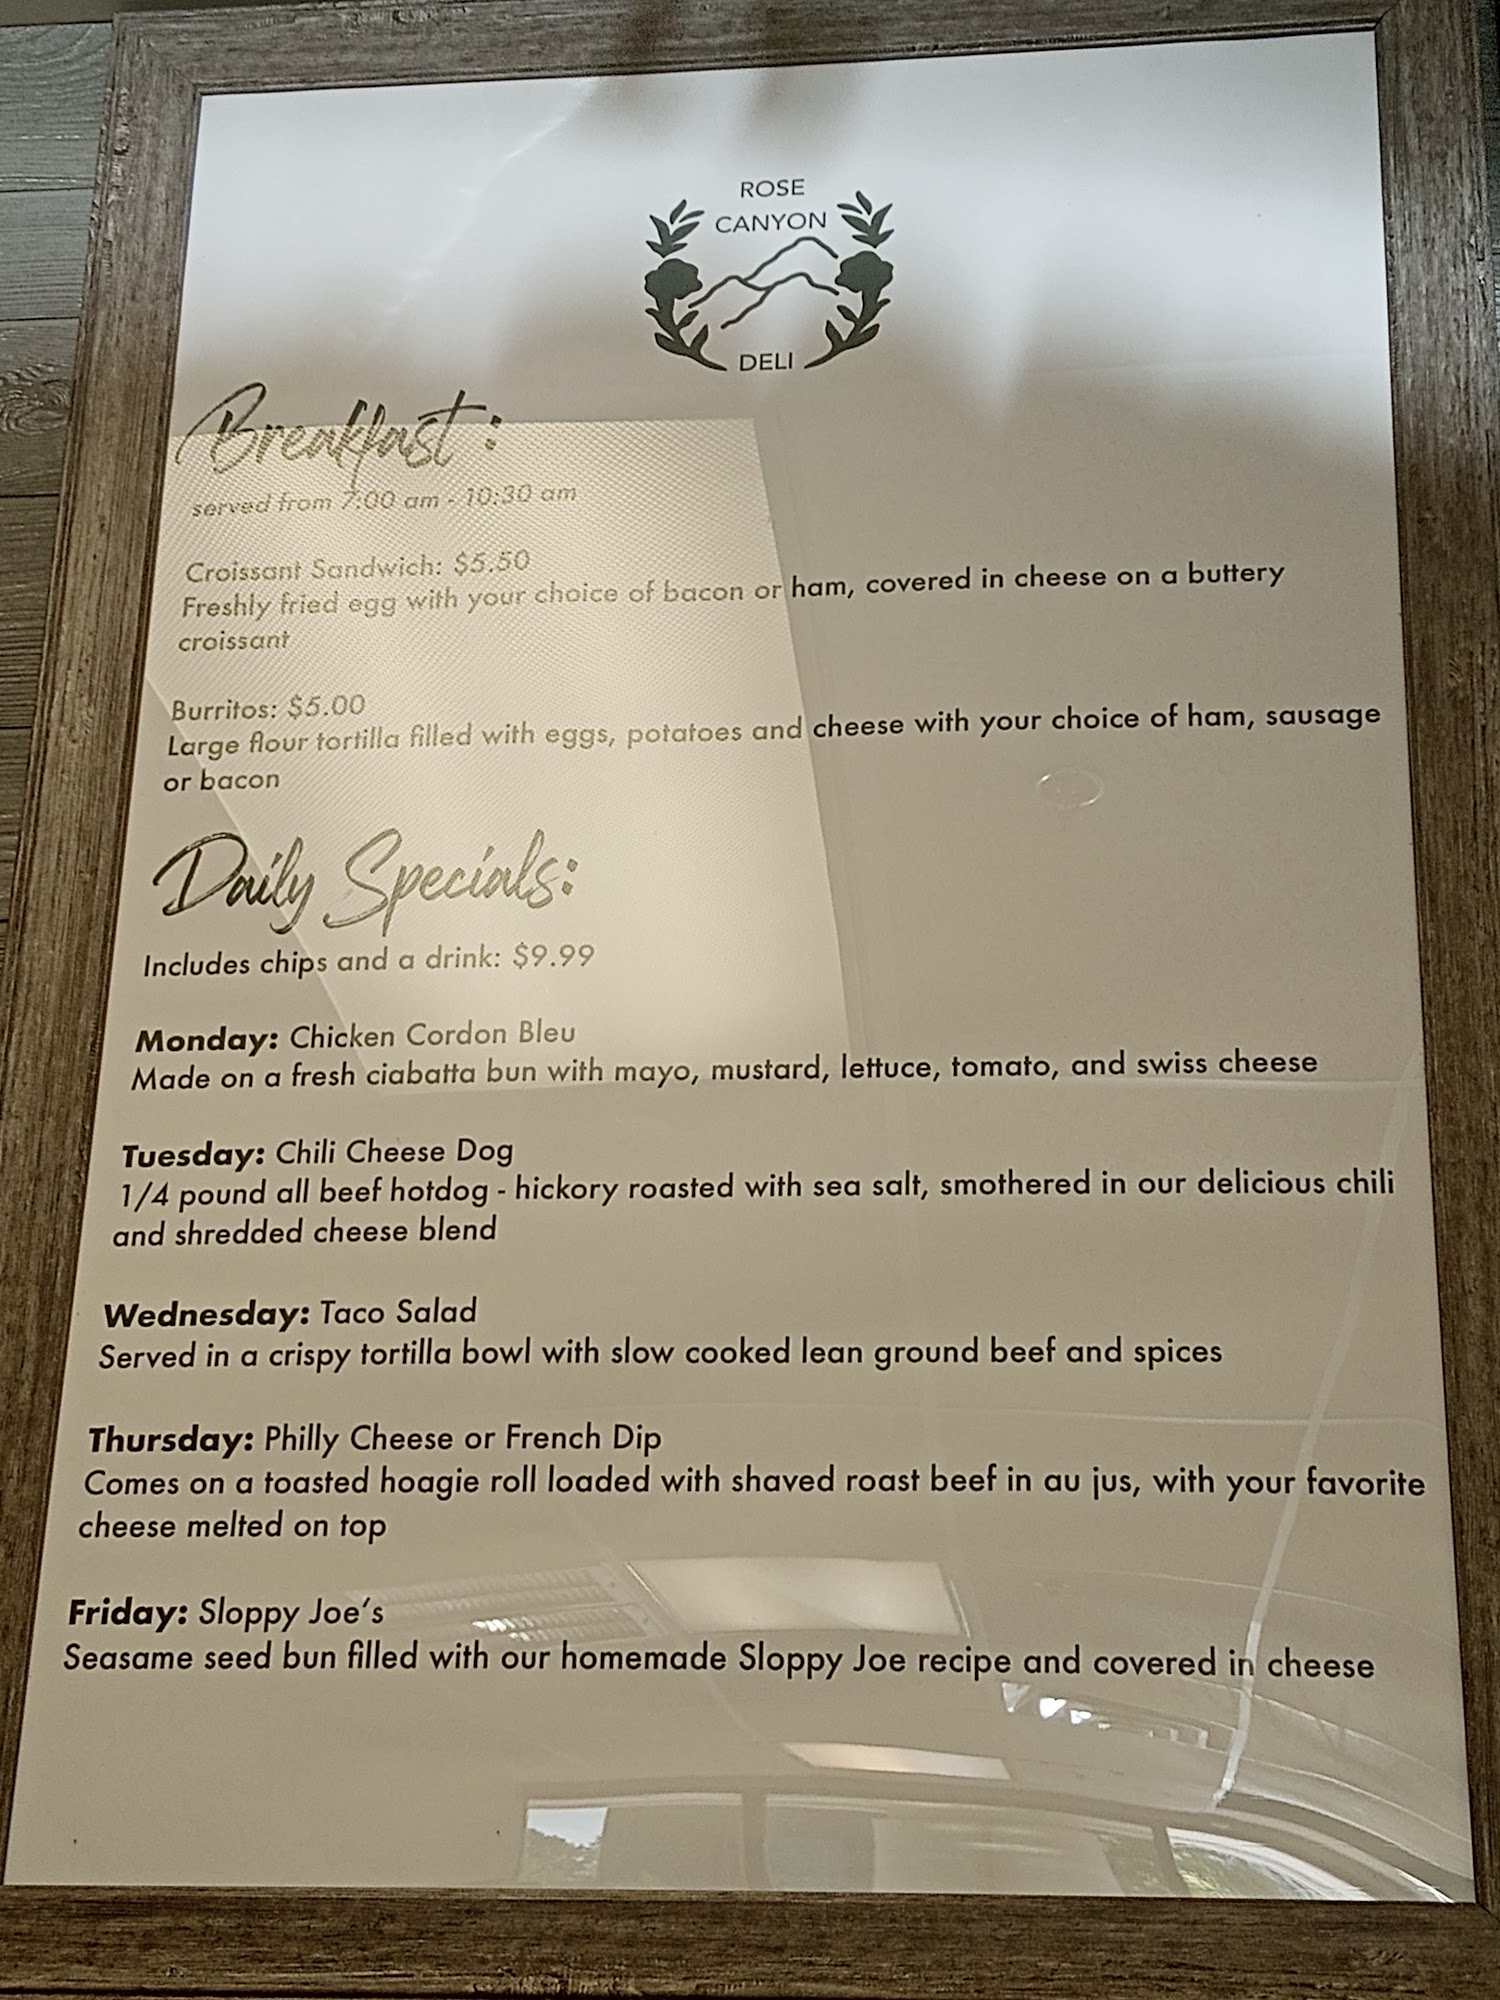 ROSE
CANYON
DELI
Breakfast:
served from 7:00 am - 10:30 am
Croissant Sandwich: $5.50
Freshly fried egg with your choice of bacon or ham, covered in cheese on a buttery
croissant
Burritos: $5.00
Large flour tortilla filled with eggs, potatoes and cheese with your choice of ham, sausage
or bacon
Daily Specials:
Includes chips and a drink: $9.99
Monday: Chicken Cordon Bleu
Made on a fresh ciabatta bun with mayo, mustard, lettuce, tomato, and swiss cheese
Tuesday: Chili Cheese Dog
1/4 pound all beef hotdog - hickory roasted with sea salt, smothered in our delicious chili
and shredded cheese blend
Wednesday: Taco Salad
Served in a crispy tortilla bowl with slow cooked lean ground beef and spices
Thursday: Philly Cheese or French Dip
Comes on a toasted hoagie roll loaded with shaved roast beef in au jus, with your favorite
cheese melted on top
Friday: Sloppy Joe's
Seasame seed bun filled with our homemade Sloppy Joe recipe and covered in cheese